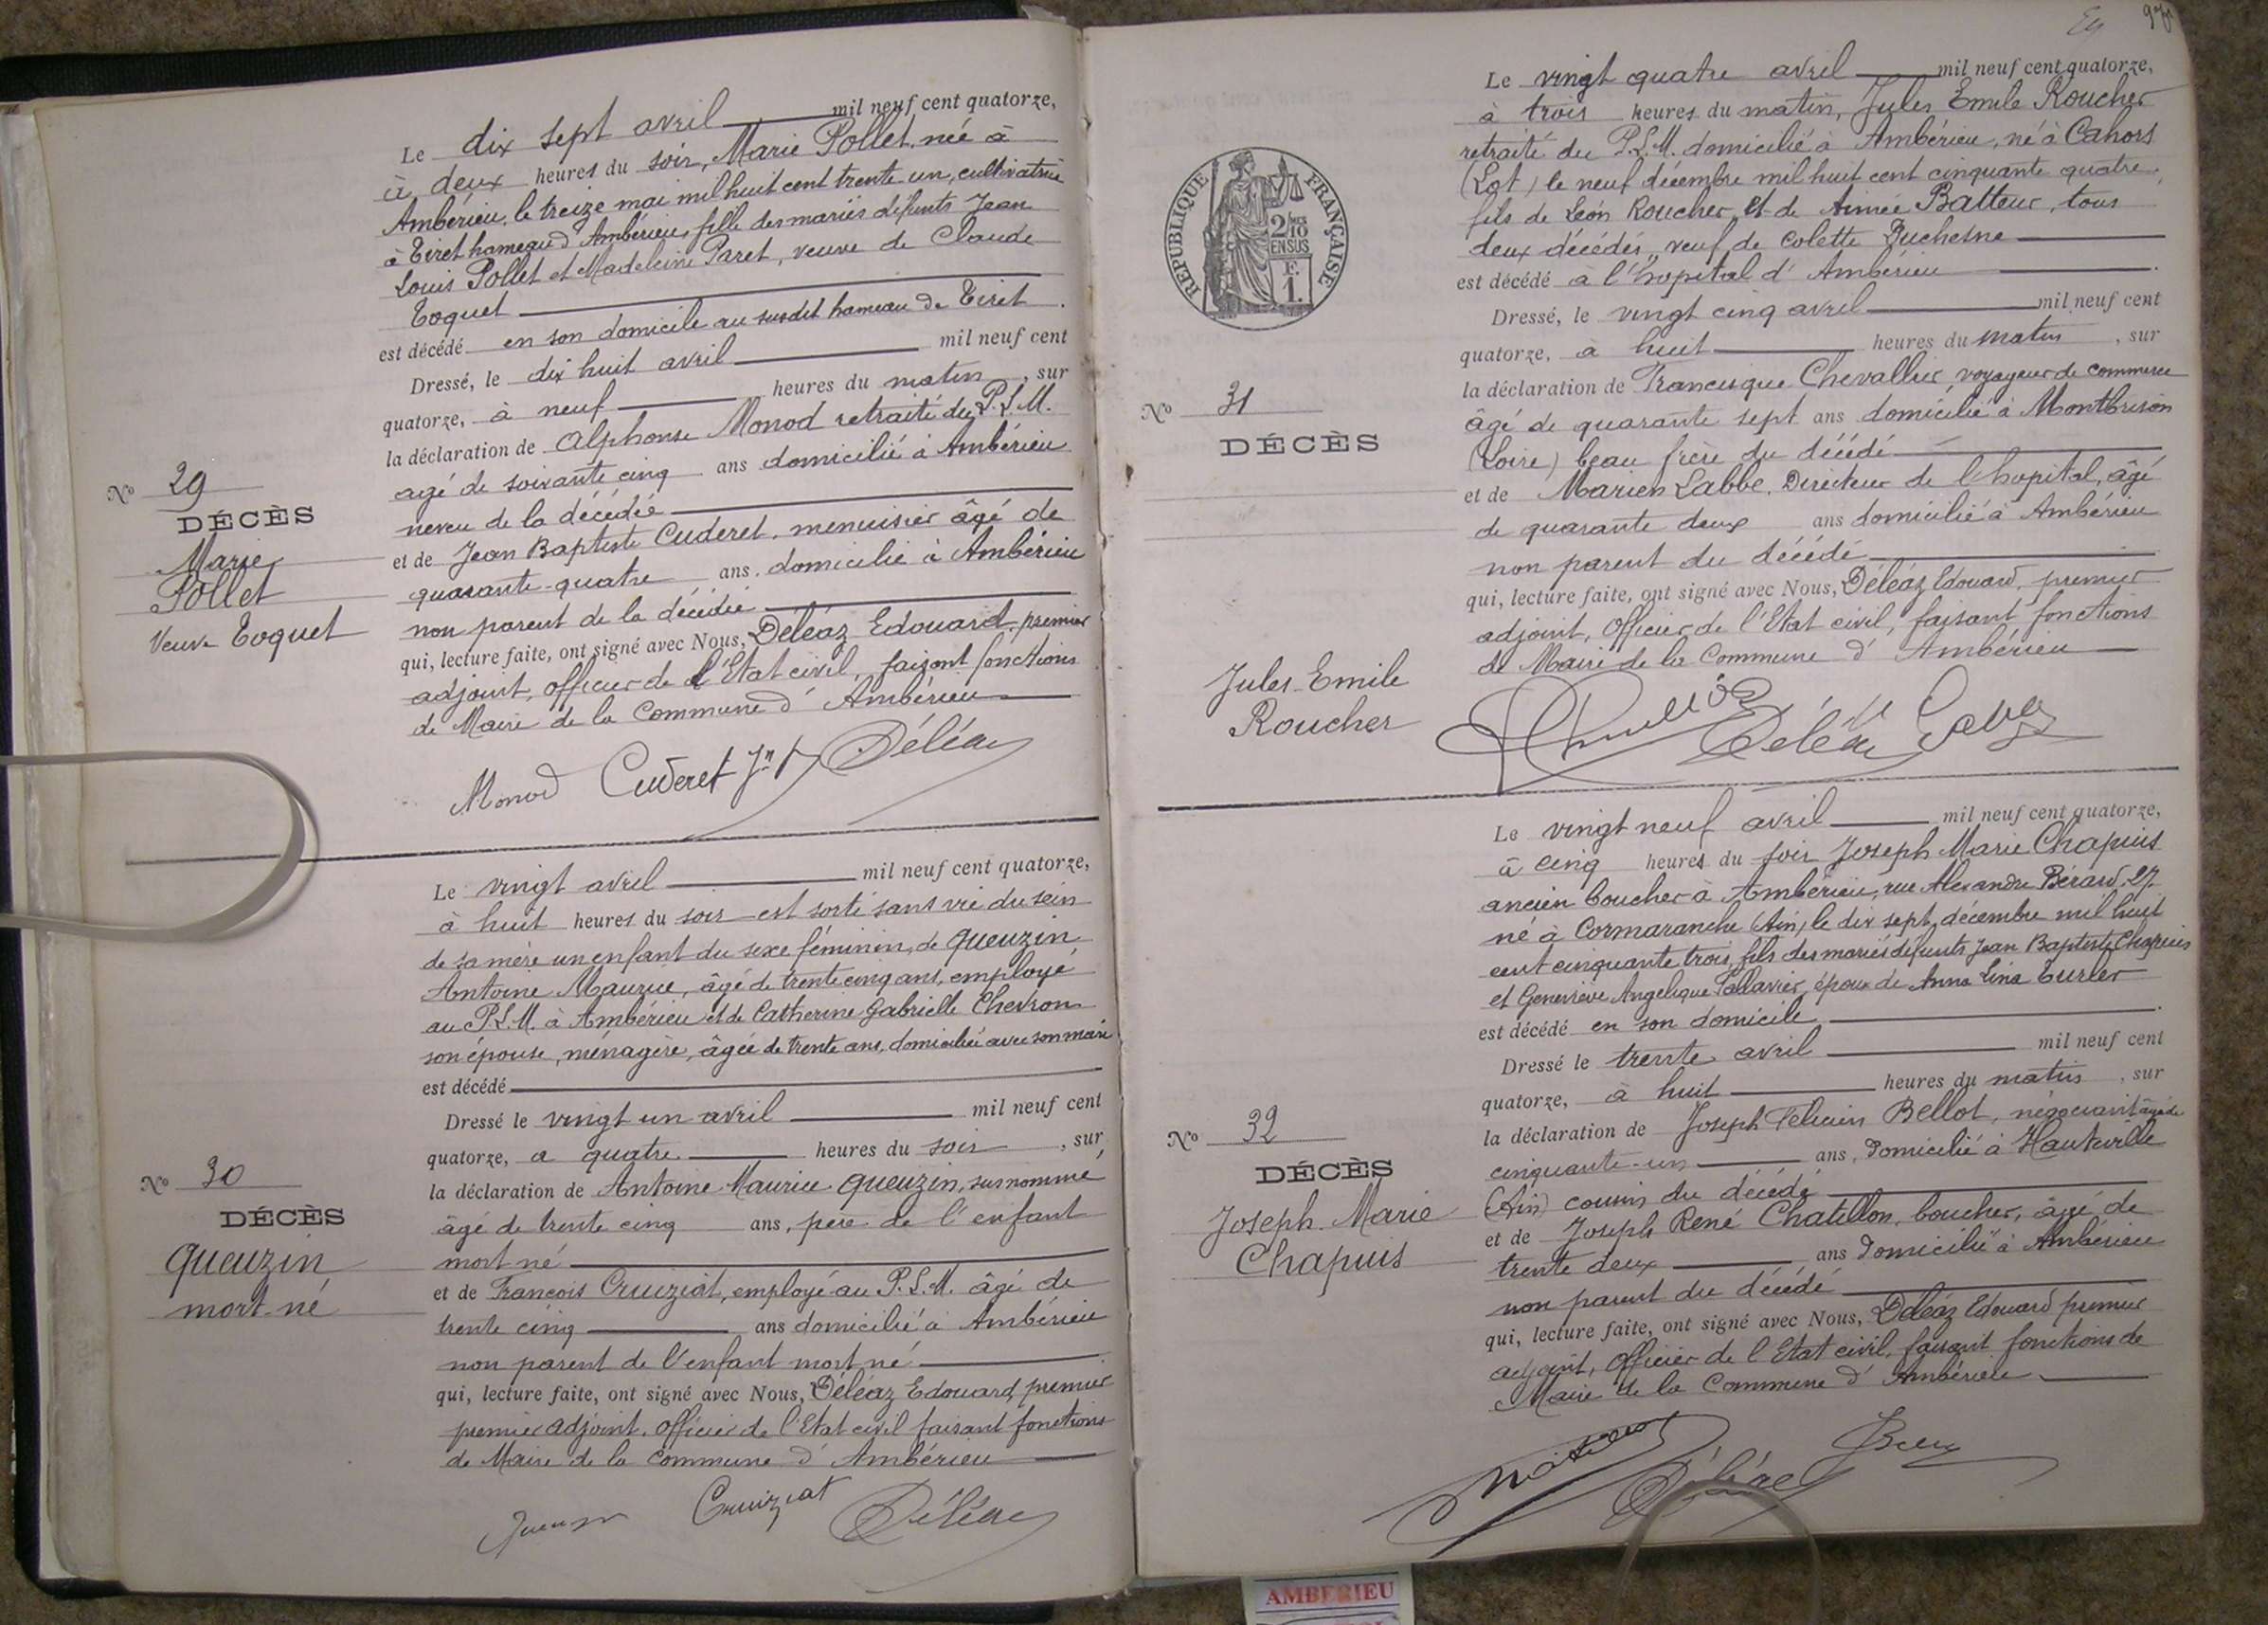 Le dix sept avril mil neuf cent quatorze,
à deux heures du soir, Marie Pollet, née à
Ambérieu, le treize mai mil huit cent trente un, cultivatrice
à Tiret hameau d'Ambérieu, fille des mariés défunts Jean
Louis Pollet et Madeleine Paret, veuve de Claude
Toquet
est décédé en son domicile au susdit hameau de Tiret.
Dressé, le dix huit avril mil neuf cent
quatorze, à neuf heures du matin, sur
la déclaration de Alphonse Monod retraité du P.L.M.
agé de soixante cinq ans domicilié à Ambérieu
neveu de la décédée
et de Jean Baptiste Cuderet, menuisier âgé de
quarante-quatre ans. domicilié à Ambérieu
non parent de la décédée
qui, lecture faite, ont signé avec Nous, Déléaz Edouard, premier
adjoint, officier de l'Etat civil, faisant fonctions
de Maire de la Commune d'Ambérieu
Monod Cuderet Jn Déléaz
No 29
DÉCÈS
Marie
Pollet
Veuve Toquet
Le vingt avril mil neuf cent quatorze,
à huit heures du soir est sorti sans vie du sein
de sa mère un enfant du sexe féminin, de Gueuzin
Antoine Maurice, âgé de trente cinq ans, employé
au P.L.M. à Ambérieu et de Catherine Gabrielle Chevron
son épouse, ménagère, âgée de trente ans, domiciliée avec son mari
est décédé
Dressé le vingt un avril mil neuf cent
quatorze, a quatre heures du soir, sur
la déclaration de Antoine Maurice Gueuzin, susnommé
âgé de trente cinq ans, père de l'enfant
mort né
et de François Cruiziat, employé au P.L.M. âgé de
trente cinq ans domicilié à Ambérieu
non parent de l'enfant mort né
qui, lecture faite, ont signé avec Nous, Déléaz Edouard, premier
premier adjoint, officier de l'Etat civil faisant fonctions
de Maire de la Commune d'Ambérieu
Cruiziat Déléaz
No 30
DÉCÈS
Gueuzin
mort-né
REPUBLIQUE FRANÇAISE
2/10 EN SUS
F. 1.
Le vingt quatre avril mil neuf cent quatorze,
à trois heures du matin, Jules Emile Roucher
retraité du P.L.M. domicilié à Ambérieu, né à Cahors
(Lot) le neuf décembre mil huit cent cinquante quatre,
fils de Léon Roucher, et de Aimée Batteur, tous
deux décédés, veuf de Colette Duchesne
est décédé à l'hopital d'Ambérieu.
Dressé, le vingt cinq avril mil neuf cent
quatorze, à huit heures du matin, sur
la déclaration de Francisque Chevallier, voyageur de commerce
âgé de quarante sept ans domicilié à Montbrison
(Loire) beau frère du décédé
et de Marien Labbe, Directeur de l'hopital, âgé
de quarante deux ans domicilié à Ambérieu
non parent du décédé
qui, lecture faite, ont signé avec Nous, Déléaz Edouard, premier
adjoint, Officier de l'Etat civil, faisant fonctions
de Maire de la Commune d'Ambérieu
Déléaz
No 31
DÉCÈS
Jules-Emile
Roucher
Le vingt neuf avril mil neuf cent quatorze,
à cinq heures du soir Joseph Marie Chapuis
ancien boucher à Ambérieu, rue Alexandre Bérard, 27.
né à Cormaranche (Ain) le dix sept décembre mil huit
cent cinquante trois, fils des mariés défunts Jean Baptiste Chapuis
et Geneviève Angelique Tallavier, époux de Anna Lina Turler
est décédé en son domicile.
Dressé le trente avril mil neuf cent
quatorze, à huit heures du matin, sur
la déclaration de Joseph Felicien Bellot, négociant âgé de
cinquante-un ans, domicilié à Hauteville
(Ain) cousin du décédé
et de Joseph René Chatillon, boucher, âgé de
trente deux ans domicilié à Ambérieu
non parent du décédé
qui, lecture faite, ont signé avec Nous, Déléaz Edouard premier
adjoint, Officier de l'Etat civil, faisant fonctions de
Maire de la Commune d'Ambérieu
Déléaz
No 32
DÉCÈS
Joseph Marie
Chapuis
AMBERIEU